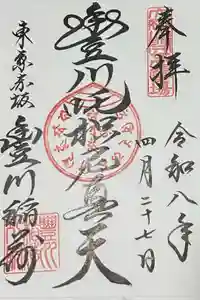 奉拝
令和八年
四月二十七日
豊川吒枳尼真天
東京赤坂
豊川稲荷